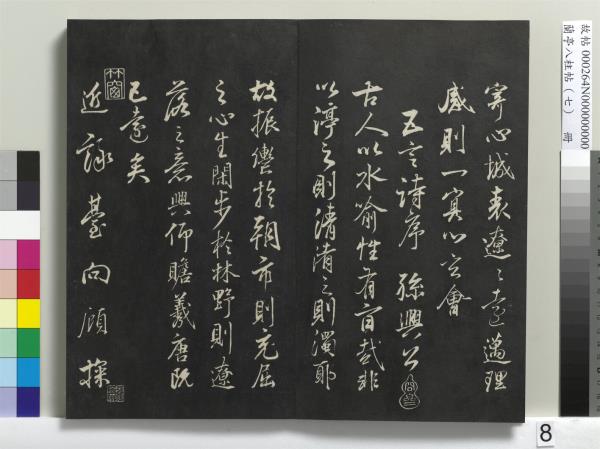 故帖 000264N000000000
蘭亭八柱帖（七） 冊
寄心域表遼〻遠邁理
感則一冥心玄會
五言詩序 孫興公
古人以水喻性有旨哉非
以渟之則清淆之則濁耶
故振轡於朝市則充屈
之心生閑步於林野則遼
落之意興仰瞻羲唐既
已遠矣
近詠臺向顧探
8